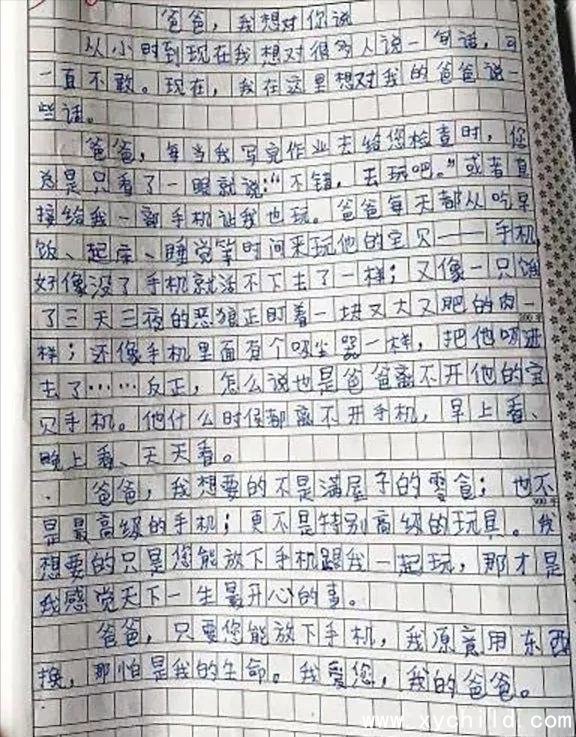 爸爸，我想对你说
从小时到现在我想对很多人说一句话，可
一直不敢。现在，我在这里想对我的爸爸说一
些话。
爸爸，每当我写完作业去给您检查时，您
总是只看了一眼就说：“不错，去玩吧。”或者直
接给我一部手机让我也玩。爸爸每天都从吃早
饭、起床、睡觉等时间来玩他的宝贝——手机
好像没了手机就活不下去了一样；又像一只饿
了三天三夜的恶狼正盯着一块又大又肥的肉一
200字
样；还像手机里面有个吸尘器一样，把他吸进
去了……反正，怎么说也是爸爸离不开他的宝
贝手机。他什么时候都离不开手机，早上看、
晚上看、天天看。
爸爸，我想要的不是满屋子的零食；也不
300字
是最高级的手机；更不是特别高级的玩具。我
想要的只是您能放下手机跟我一起玩，那才是
我感觉天下一生最开心的事。
爸爸，只要您能放下手机，我原意用东西
换，那怕是我的生命。我爱您，我的爸爸。
www.xychild.com